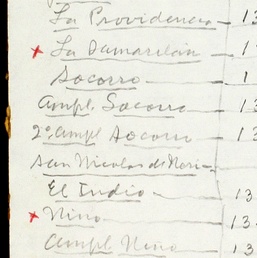 La Providencia 13
x La Damarilán 1
Socorro 1
Ampl. Socorro 13
2ª ampl Socorro 13
San Nicolas de
El Indio 13
x Nino 13
Ampl Nino 13